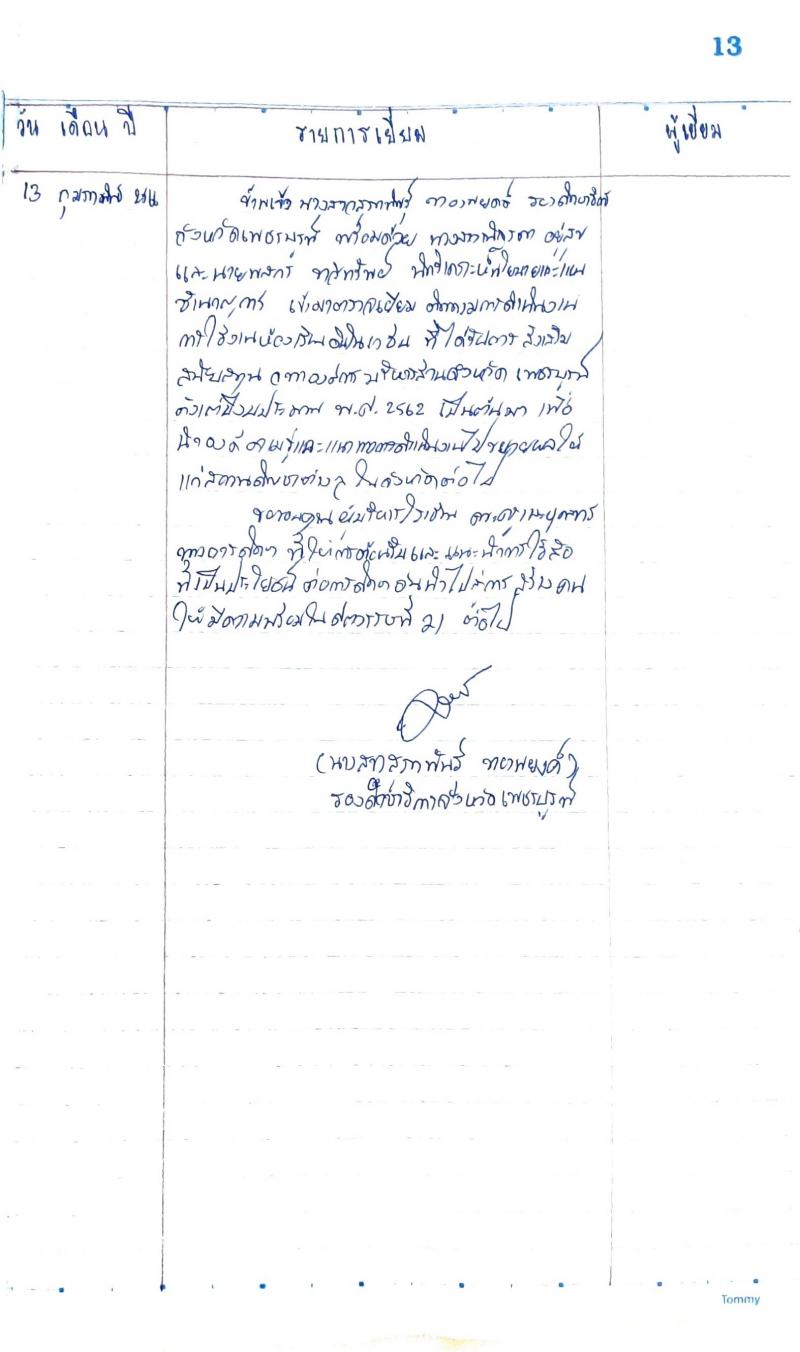 13
วัน เดือน ปี รายการเยี่ยม ผู้เยี่ยม
13 กุมภาพันธ์ ข้าพเจ้า นางสาวสุภาพันธุ์ รองศึกษาธิการ
จังหวัดเพชรบูรณ์ พร้อมด้วย อยู่สุข
และนาย นักวิเคราะห์นโยบายและแผน
ชำนาญการ เข้ามาตรวจเยี่ยม ติดตามการดำเนินงาน
การใช้งานห้องเรียน ที่ได้รับการ ส่งเสริม
สนับสนุน จากองค์การบริหารส่วนจังหวัด เพชรบูรณ์
ตั้งแต่ปีงบประมาณ พ.ศ. 2562 เป็นต้นมา เพื่อ
นำองค์ความรู้และแนวทางการดำเนินงานไปขยายผลให้
แก่สถานศึกษา ในจังหวัดต่อไป
ขอขอบคุณ ผู้บริหารโรงเรียน คณะครูและบุคลากร
ทางการศึกษา ที่ให้การต้อนรับและแนะนำการใช้สื่อ
ที่เป็นประโยชน์ ต่อการศึกษา อันนำไปสู่การ สร้างคน
ให้มีความพร้อมในศตวรรษที่ 21 ต่อไป
(นางสาวสุภาพันธุ์
รองศึกษาธิการจังหวัดเพชรบูรณ์
Tommy